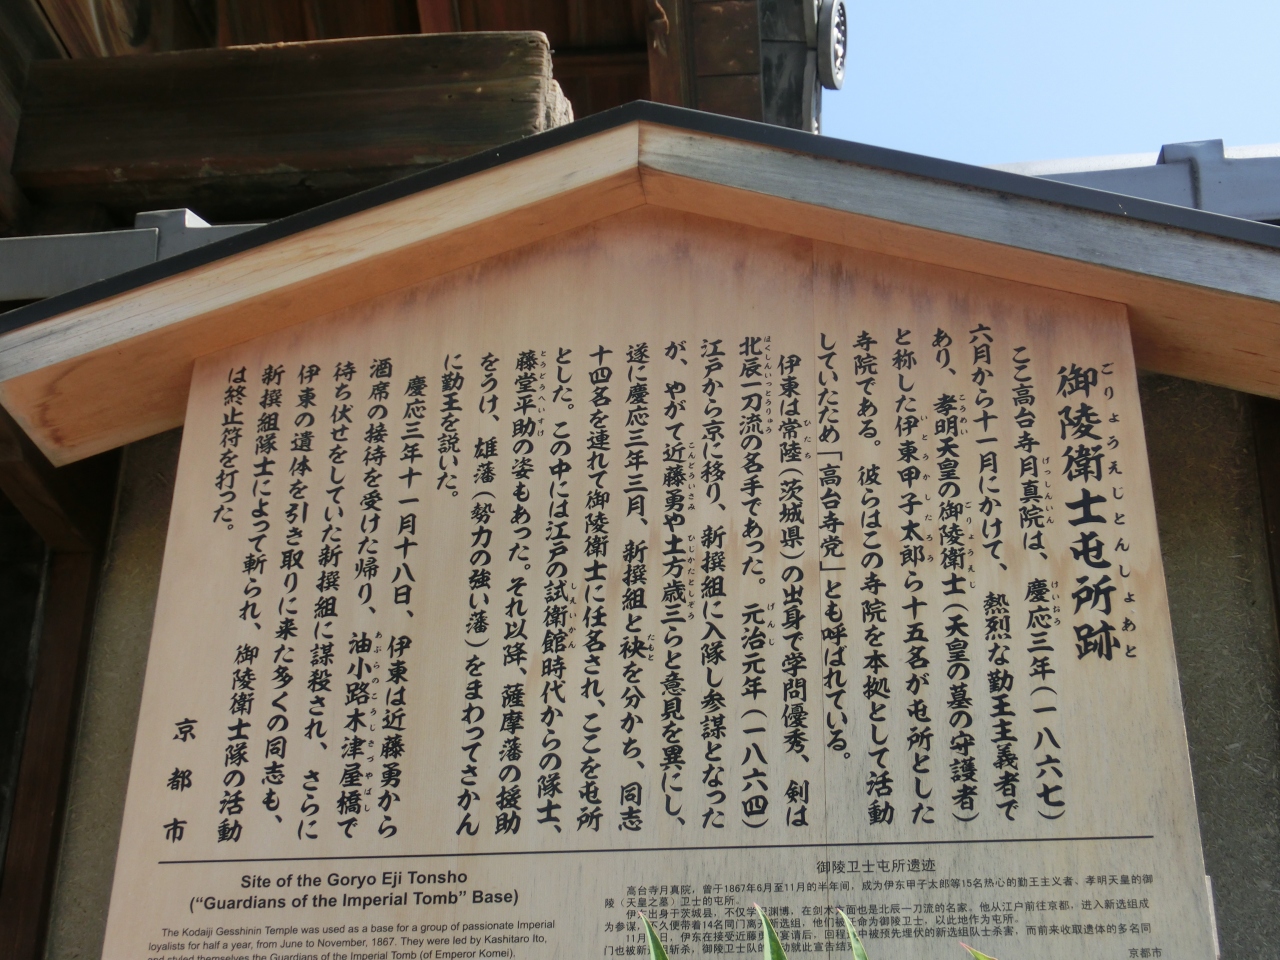 御陵衛士屯所跡
ごりょうえじとんしょあと
ここ高台寺月真院は、慶応三年(一八六七)
げっしんいん けいおう
六月から十一月にかけて、熱烈な勤王主義者で
あり、孝明天皇の御陵衛士(天皇の墓の守護者)
こうめい ごりょうえじ
と称した伊東甲子太郎ら十五名が屯所とした
いとうかしたろう
寺院である。彼らはこの寺院を本拠として活動
していたため「高台寺党」とも呼ばれている。
伊東は常陸(茨城県)の出身で学問優秀、剣は
ひたち
北辰一刀流の名手であった。元治元年(一八六四)
ほくしんいっとうりゅう げんじ
江戸から京に移り、新撰組に入隊し参謀となった
が、やがて近藤勇や土方歳三らと意見を異にし、
こんどういさみ ひじかたとしぞう
遂に慶応三年三月、新撰組と袂を分かち、同志
たもと
十四名を連れて御陵衛士に任名され、ここを屯所
とした。この中には江戸の試衛館時代からの隊士、
しえいかん
藤堂平助の姿もあった。それ以降、薩摩藩の援助
とうどうへいすけ
をうけ、雄藩(勢力の強い藩)をまわってさかん
に勤王を説いた。
慶応三年十一月十八日、伊東は近藤勇から
酒席の接待を受けた帰り、油小路木津屋橋で
あぶらのこうじきづやばし
待ち伏せをしていた新撰組に謀殺され、さらに
伊東の遺体を引き取りに来た多くの同志も、
新撰組隊士によって斬られ、御陵衛士隊の活動
は終止符を打った。
京都市
Site of the Goryo Eji Tonsho
("Guardians of the Imperial Tomb" Base)
The Kodaiji Gesshinin Temple was used as a base for a group of passionate Imperial
loyalists for half a year, from June to November, 1867. They were led by Kashitaro Ito,
and styled themselves the Guardians of the Imperial Tomb (of Emperor Komei).
御陵卫士屯所遗迹
高台寺月真院，曾于1867年6月至11月的半年间，成为伊东甲子太郎等15名热心的勤王主义者、孝明天皇的御
陵（天皇之墓）卫士的屯所。
伊东出身于茨城县，不仅学识渊博，在剑术方面也是北辰一刀流的名家。他从江户前往京都，进入新选组成
为参谋，不久便带着14名同门离开新选组，他们被任命为御陵卫士，以此地作为屯所。
11月 日，伊东在接受近藤勇 宴请后，回程 中被预先埋伏的新选组队士杀害，而前来收取遗体的多名同
门也被新选组斩杀，御陵卫士队的 动就此宣告结束
京都市